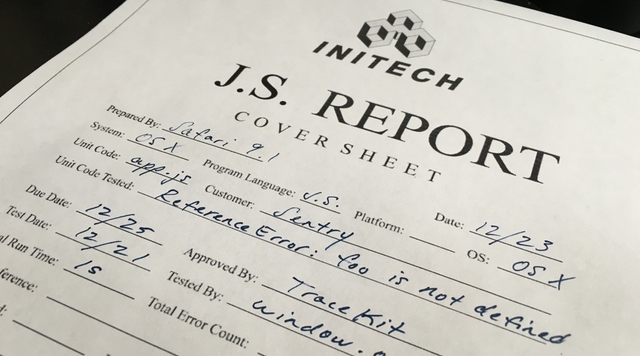 INITECH
J.S. REPORT
COVER SHEET
Prepared By: Safari 9.1 Date: 12/23
System: OSX Program Language: J.S. Platform: OS: OSX
Unit Code: app.js Customer: Sentry
Unit Code Tested: ReferenceError: foo is not defined
Due Date: 12/25 Approved By: TraceKit
Test Date: 12/21 Tested By: window.
Run Time: 1s Total Error Count: